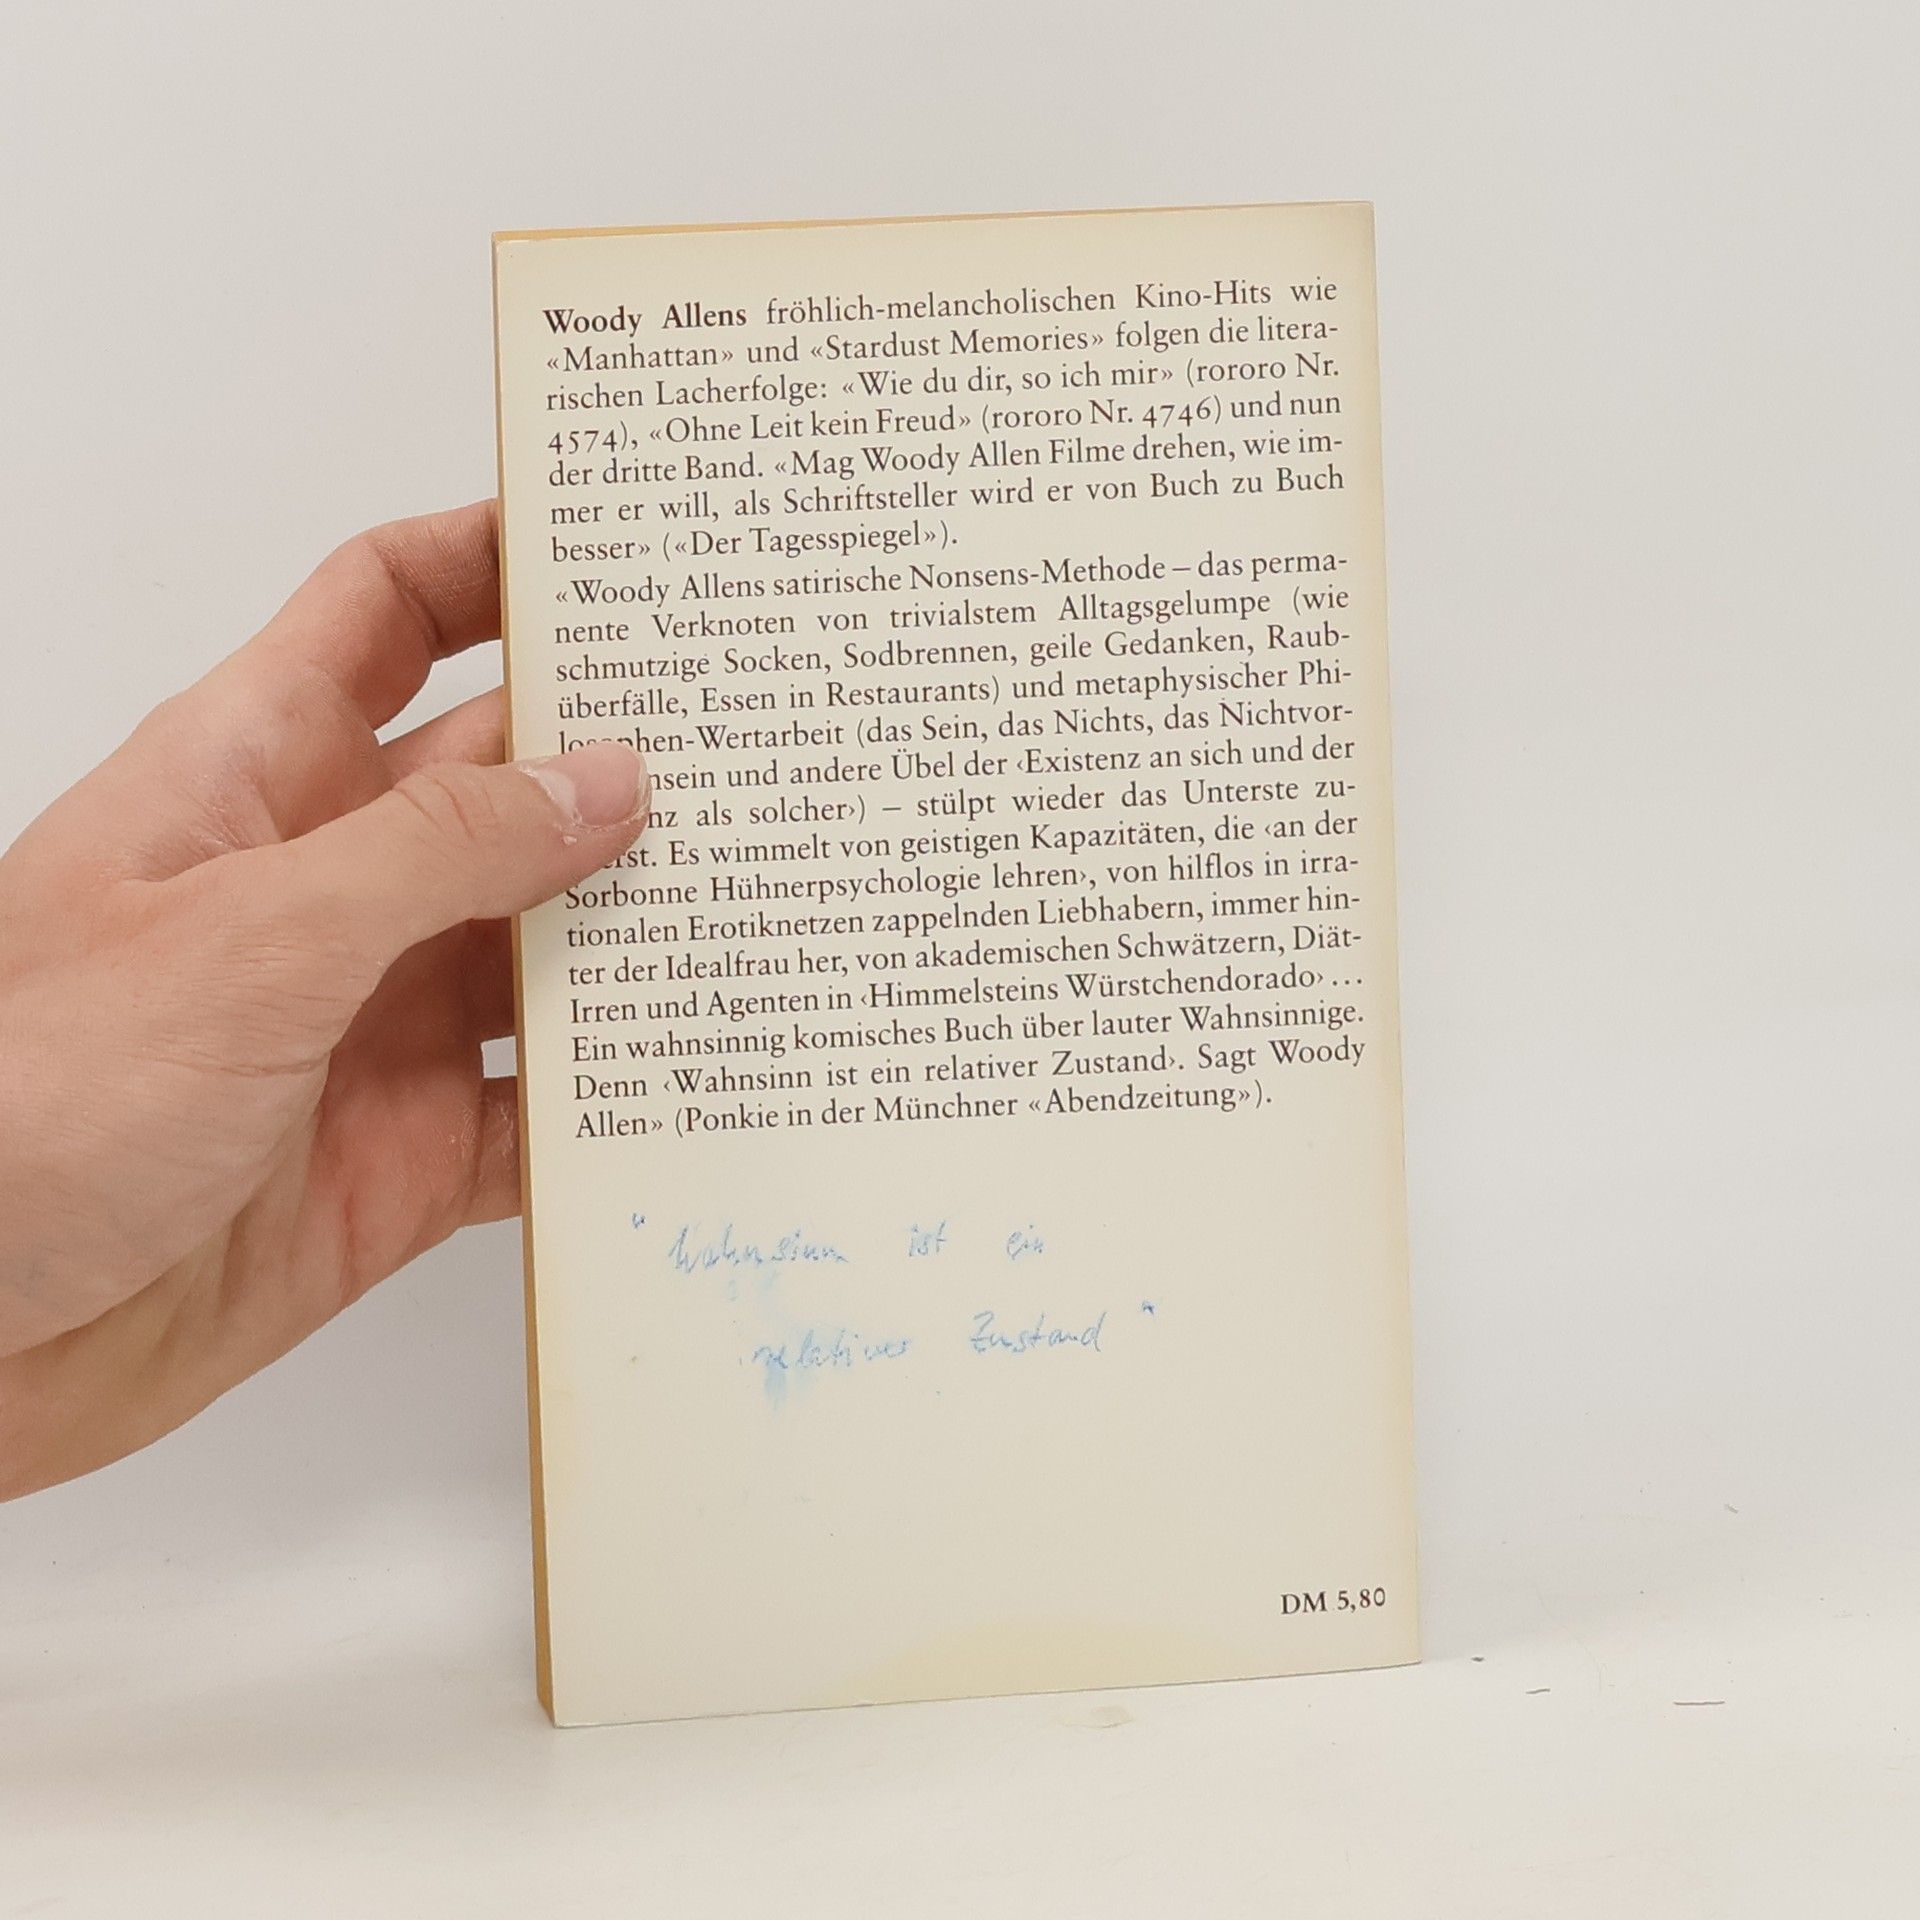 Woody Allens fröhlich-melancholischen Kino-Hits wie
«Manhattan» und «Stardust Memories» folgen die litera-
rischen Lacherfolge: «Wie du dir, so ich mir» (rororo Nr.
4574), «Ohne Leit kein Freud» (rororo Nr. 4746) und nun
der dritte Band. «Mag Woody Allen Filme drehen, wie im-
mer er will, als Schriftsteller wird er von Buch zu Buch
besser» («Der Tagesspiegel»).
«Woody Allens satirische Nonsens-Methode – das perma-
nente Verknoten von trivialstem Alltagsgelumpe (wie
schmutzige Socken, Sodbrennen, geile Gedanken, Raub-
überfälle, Essen in Restaurants) und metaphysischer Phi-
hen-Wertarbeit (das Sein, das Nichts, das Nichtvor-
nsein und andere Übel der ‹Existenz an sich und der
nz als solcher›) – stülpt wieder das Unterste zu-
erst. Es wimmelt von geistigen Kapazitäten, die ‹an der
Sorbonne Hühnerpsychologie lehren›, von hilflos in irra-
tionalen Erotiknetzen zappelnden Liebhabern, immer hin-
ter der Idealfrau her, von akademischen Schwätzern, Diät-
Irren und Agenten in ‹Himmelsteins Würstchendorado› ...
Ein wahnsinnig komisches Buch über lauter Wahnsinnige.
Denn ‹Wahnsinn ist ein relativer Zustand›. Sagt Woody
Allen» (Ponkie in der Münchner «Abendzeitung»).
"Wahnsinn ist ein
relativer Zustand"
DM 5,80